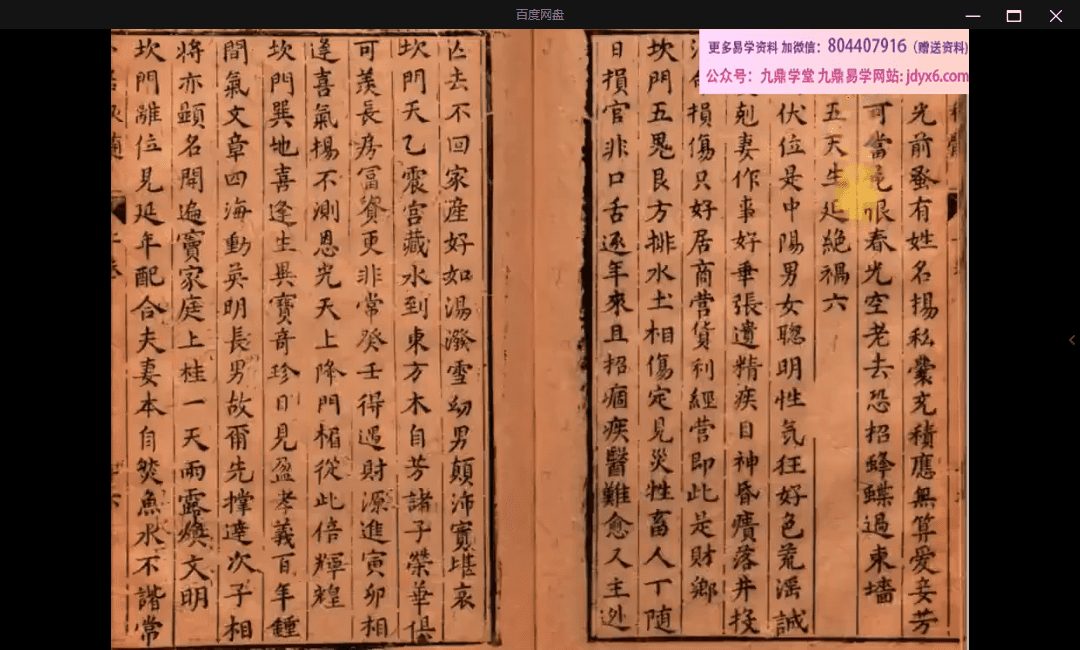 百度网盘
更多易学资料 加微信：804407916（赠送资料)
公众号：九鼎学堂 九鼎易学网站: jdyx6.com
光前蚤有姓名揚私囊充積應無算愛妾芳
可當 恨春光空老去恐招蜂蝶過東墻
五天生延絕禍六
伏位是中陽男女聰明性氣狂好色荒淫誠
剋妻作事好乖張遺精疾目神昏癀落井投
損傷只好居商營貨利經營即此是財鄉
坎門五鬼艮方排水土相傷定見災牲畜人丁随
日損官非口舌逐年來且招痼疾醫難愈人主迯
亡去不回家產好如湯潑雪幼男顛沛實堪哀
坎門天乙震宮藏水到東方木自芳諸子榮華俱
可羨長房冨資更非常癸壬得遇財源進寅卯相
逢喜氣揚不測恩光天上降門楣從此倍輝煌
坎門巽地喜逢生異寶奇珍日見盈孝義百年鍾
間氣文章四海動英明長男故爾先撑達次子相
將亦顕名開遍竇家庭上桂一天雨露煥文明
坎門離位見延年配合夫妻本自焂魚水不諧常